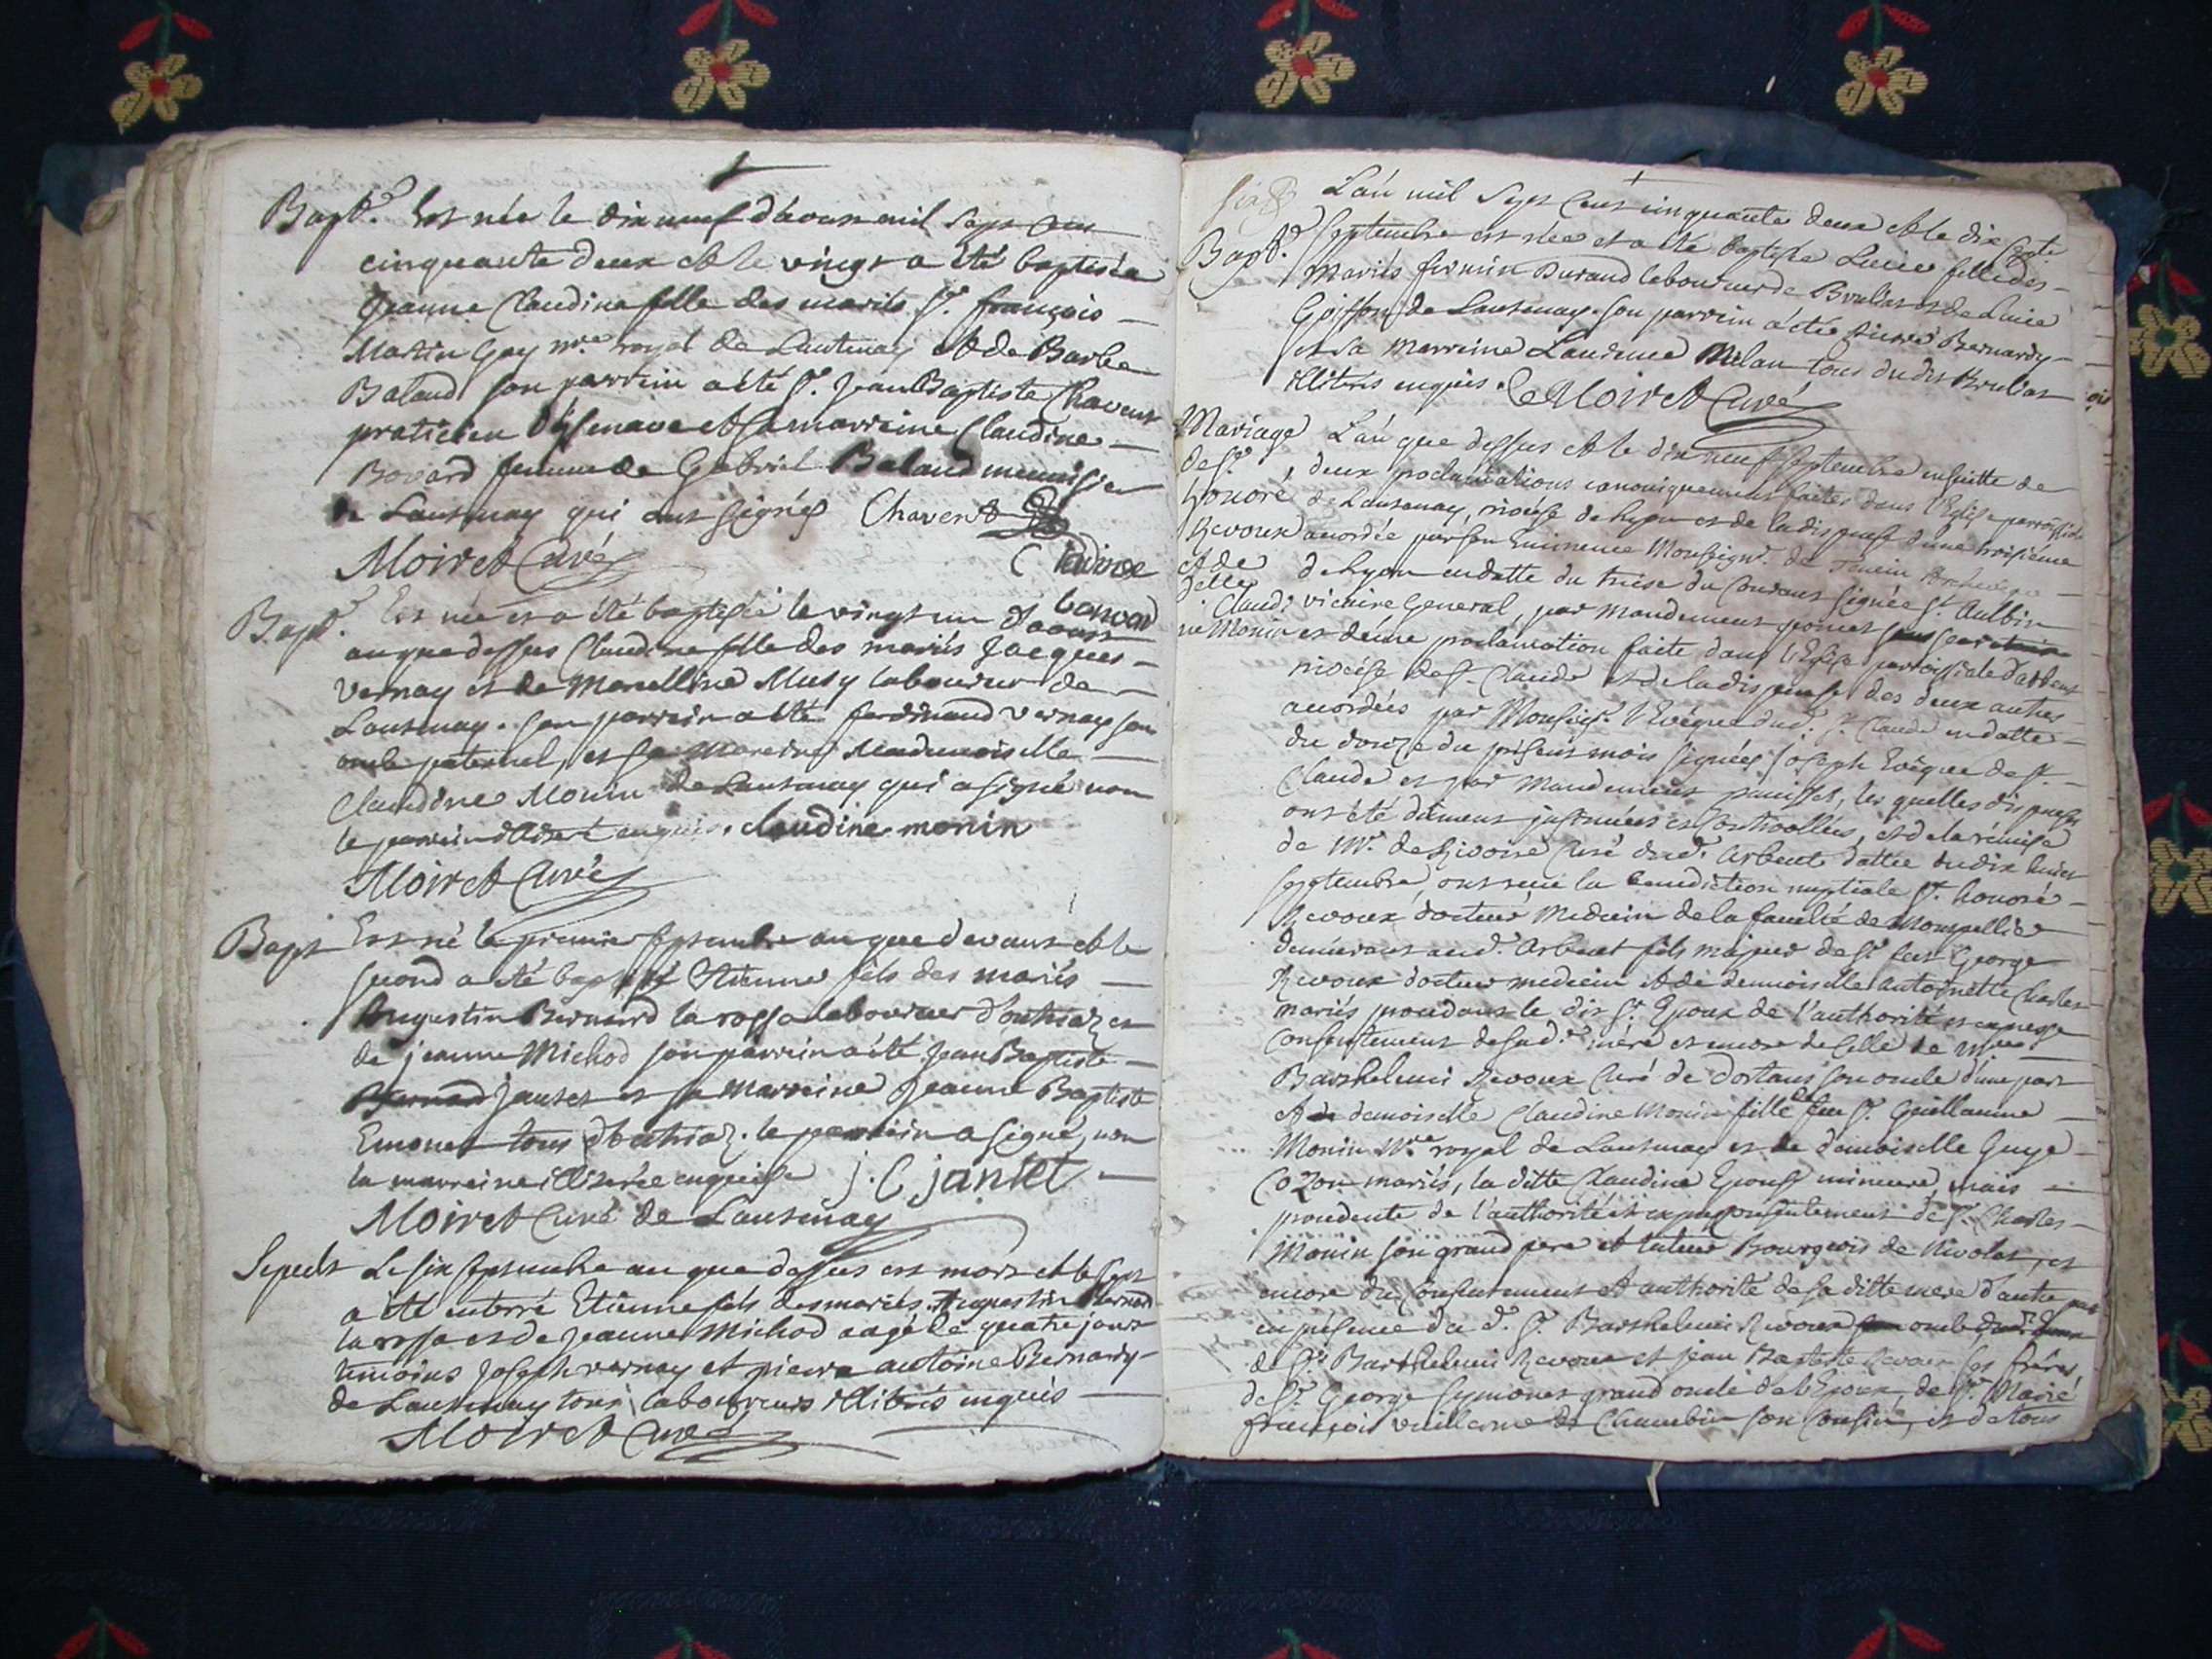 Bapt.e Est née le dix neuf d'aoust mil sept cens
cinquante deux et le vingt a été baptisée
Jeanne Claudine fille des mariés Sr. françois
Martin Goy nre. royal de Lantenay et de Barbe
Baland son parrein a été Sr. Jean Baptiste Chavent
praticien d'Isenave et sa marreine Claudine
Bovard femme de Gabriel Baland meunisier
de Lantenay qui ont signés Chavent
Moiret Curé Claudine
bovard
Bapt. Est née et a été baptisée le vingt un d'aoust
an que dessus Claudine fille des mariés Jacques
Vernay et de Marcelline Musy laboureur de
Lantenay. son parrein a été ferdinand vernay son
oncle paternel, et sa Marreine Mademoiselle
Claudine Monin de Lantenay qui a signé non
le parrein enquis. claudine monin
Moiret Curé
Bapt Est né le premier septembre an que devant et le
second a été baptisé Etienne fils des mariés
Augustin Bernard la rossa laboureur d'outriaz et
de jeanne Michod son parrein a été Jean Baptiste
Bernard Jantet et sa Marreine Jeanne Baptiste
Emonet tous d'outriaz. le parrein a signé, non
la marreine illiterée enquise j. C jantet
Moiret Curé de Lantenay
Sepult Le six septembre an que dessus est mort et le sept
a été enterré Etienne fils des mariés Augustin Bernard
la rossa et de Jeanne Michod agé de quatre jours
temoins Joseph vernay et pierre antoine Bernardy
de Lantenay tous laboureurs illiterés enquis
Moiret Curé
L'an mil sept cent cinquante deux et le dix sept
Bapt.e septembre est née et a été baptisée Lucie fille des
mariés firmin Durand laboureur de Brulias et de Lucie
Goiffon de Lantenay. son parrein a été Bernardy
et sa Marreine Laurence Milan tous dudit Brulias
illiterés enquis. Moiret Curé
Mariage L'an que dessus et le dix neuf septembre ensuitte de
de Sr. deux proclamations canoniquement faites dans l'Eglise parroissiale
honoré de Lantenay, diocése de Lyon et de la dispense d'une troisiéme
Revoux accordée par son Eminence Monseignr. de Tencin Archevêque
et de de Lyon en datte du treise du Courant signée St. Aulbin
delle Claudi vicaire General, par Mandement
ne Monin et d'une proclamation faite dans l'Eglise parroissiale d'arbent
diocése de St. Claude et de la dispense des deux autres
accordées par Monseigr. l'Evêque dud. St. Claude en datte
du douze du présent mois signées Joseph Evêque de St.
Claude et par Mandement lesquelles dispenses
ont été dûment insinuées et Controollées, et de la remise
de Mr. de Rivoire Curé dud. Arbent dattée du dix huict
septembre, ont reçu la benediction nuptiale Sr. honoré
Revoux docteur Medecin de la faculté de Monpellier
demeurant aud. Arbent fils majeur de Sr. feu George
Revoux docteur medecin et de demoiselle Antoinette Charles
mariés procedant le dit Sr. Epoux de l'authorité et expresse
Consentement de sad. mére et encore de Celle de Mre.
Barthelemi Revoux Curé de dortans son oncle d'une part
et demoiselle Claudine Monin fille de feu Sr. Guillaume
Monin Nre. royal de Lantenay et de demoiselle Guye
Cozon mariés, la ditte Claudine Epouse mineure, mais
procedente de l'authorité et exprés consentement de Sr. Charles
Monin son grand pere et tuteur Bourgeois de Nivolet, et
encore du Consentement et authorité de sa ditte mere d'autre part
en présence du d. Sr. Barthelemi Revoux oncle
de Sr. Barthelemi Revoux et Jean Baptiste Revoux ses fréres
de Sr. George Symonet grand oncle de l'Epoux, de Sr. Marie
françois vuillerme de Chambin son Cousin, et de tous